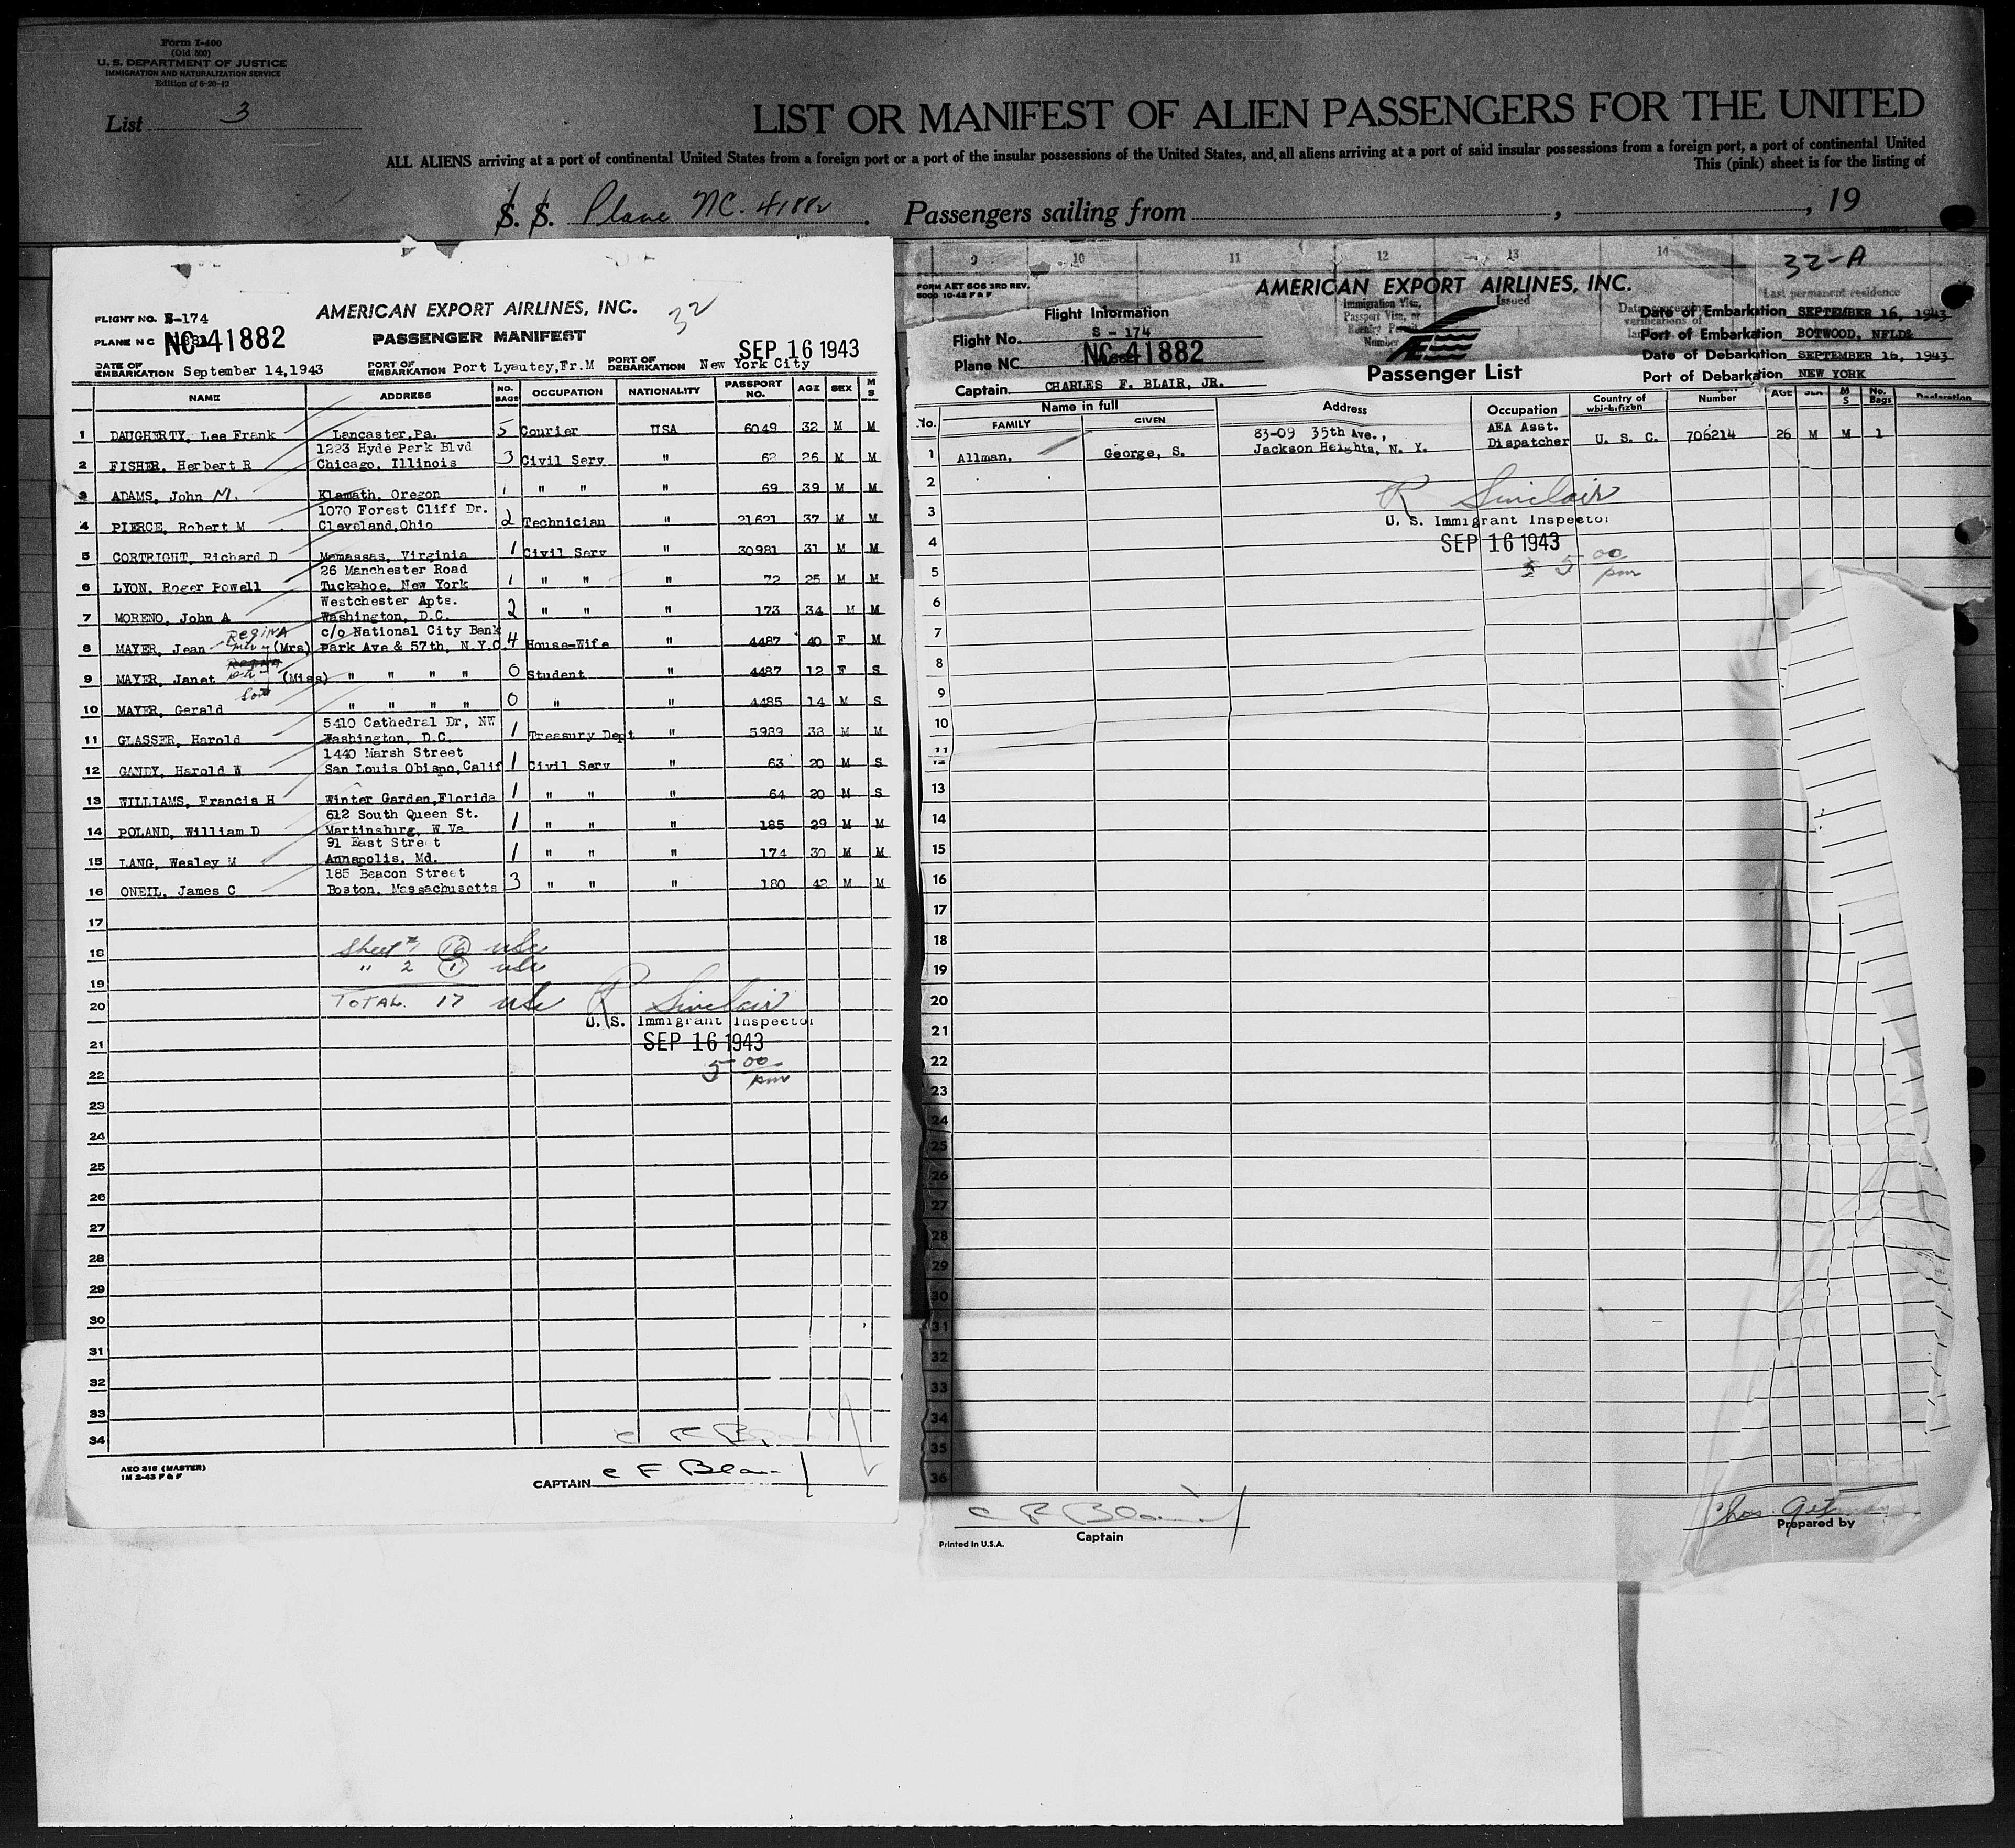 Form I-400
(Old 500)
U. S. DEPARTMENT OF JUSTICE
IMMIGRATION AND NATURALIZATION SERVICE
Edition of 6-20-42
List 3
LIST OR MANIFEST OF ALIEN PASSENGERS FOR THE UNITED
ALL ALIENS arriving at a port of continental United States from a foreign port or a port of the insular possessions of the United States, and all aliens arriving at a port of said insular possessions from a foreign port, a port of continental United
This (pink) sheet is for the listing of
S. S. Plane NC. 41882 . Passengers sailing from , , 19
FLIGHT NO. S-174
AMERICAN EXPORT AIRLINES, INC. 32
PLANE N C NC-41882
PASSENGER MANIFEST
SEP 16 1943
DATE OF EMBARKATION September 14,1943 PORT OF EMBARKATION Port Lyautey,Fr.M PORT OF DEBARKATION New York City
NAME ADDRESS NO. BAGS OCCUPATION NATIONALITY PASSPORT NO. AGE SEX M S
1 DAUGHERTY, Lee Frank Lancaster,Pa. 5 Courier USA 6049 32 M M
1223 Hyde Park Blvd
2 FISHER, Herbert R Chicago, Illinois 3 Civil Serv " 62 26 M M
3 ADAMS, John M. Klamath, Oregon 1 " " " 69 39 M M
1070 Forest Cliff Dr.
4 PIERCE, Robert M Cleveland,Ohio 2 Technician " 21621 37 M M
5 CORTRIGHT, Richard D Memassas, Virginia 1 Civil Serv " 30981 31 M M
26 Manchester Road
6 LYON, Roger Powell Tuckahoe, New York 1 " " " 72 25 M M
Westchester Apts.
7 MORENO, John A Washington, D.C. 2 " " " 173 34 M M
Regina c/o National City Bank
8 MAYER, Jean (Mrs) Park Ave & 57th, N.Y.C. 4 House-Wife " 4487 40 F M
9 MAYER, Janet (Miss) " " " " 0 Student " 4487 12 F S
Son
10 MAYER, Gerald " " " " 0 " " 4485 14 M S
5410 Cathedral Dr, NW
11 GLASSER, Harold Washington, D.C. 1 Treasury Dept " 5989 38 M M
1440 Marsh Street
12 GANDY, Harold W San Louis Obispo,Calif 1 Civil Serv " 63 20 M S
13 WILLIAMS, Francis H Winter Garden,Florida 1 " " " 64 20 M S
612 South Queen St.
14 POLAND, William D Martinsburg, W.Va 1 " " " 185 29 M M
91 East Street
15 LANG, Wesley M Annapolis, Md. 1 " " " 174 30 M M
185 Beacon Street
16 ONEIL, James C Boston, Massachusetts 3 " " " 180 42 M M
17
18 Sheet #1 16 USC
" 2 1 USC
19
20 TOTAL. 17 USC R Sinclair
U. S. Immigrant Inspector
21 SEP 16 1943
22 5 00 pm
23
24
25
26
27
28
29
30
31
32
33
34
AEO 316 (MASTER)
1M 2-43 P & F
CAPTAIN C F Blair
9 10 11 12 13 14
32-A
FORM AET 606 3RD REV.
5000 10-42 P & F
AMERICAN EXPORT AIRLINES, INC.
Immigration Visa, Passport Visa, or Reentry Permit Number
Issued
Last permanent residence
Flight Information
Flight No. S - 174
Plane NC NC-41882
Captain CHARLES F. BLAIR, JR.
Passenger List
Date of Embarkation SEPTEMBER 16, 1943
Port of Embarkation BOTWOOD, NFLD&
Date of Debarkation SEPTEMBER 16, 1943
Port of Debarkation NEW YORK
No. Name in full Address Occupation Country of which citizen Number AGE SEX M S No. Bags Declaration
FAMILY GIVEN
83-09 35th Ave., AEA Asst.
1 Allman, George, S. Jackson Heights, N. Y. Dispatcher U. S. C. 706214 26 M M 1
2
R Sinclair
3
U. S. Immigrant Inspector
4 SEP 16 1943
5 5 00 pm
6
7
8
9
10
11
12
13
14
15
16
17
18
19
20
21
22
23
24
25
26
27
28
29
30
31
32
33
34
35
36
C F Blair
Captain
Printed in U.S.A.
Prepared by